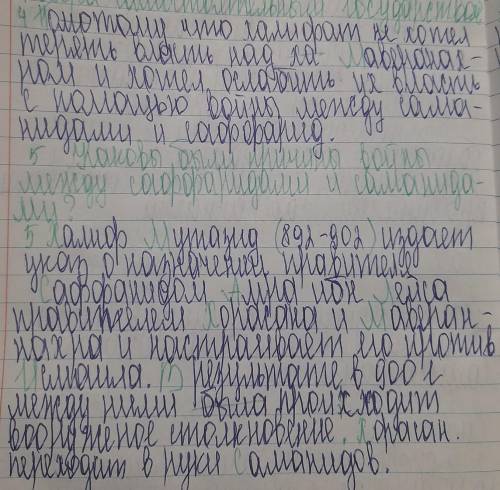 самостоятельным государством
4 Потому что халифат не хотел
терять власть над ха- Мавераннах-
ном и хотел ослабить их власть
с помощью войны между сама-
нидами и саффарид.
5 Каковы были причины войны
между саффаридами и саманида-
ми?
5 Халиф Мутазид (892-902) издает
указ о назначении правителя
Саффаридом Амна ибн Лейса
правителем Хорасана и Маверан-
нахра и настраивает его против
Исмаила. В результате в 900 г
между ними была происходит
вооруженое столкновение. Хорасан.
переходит в руки Саманидов.